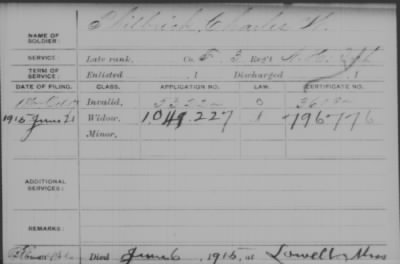 NAME OF SOLDIER: Philbrick, Charles W.
SERVICE: Late rank, Co. F, 3 Reg't N.H. Inf
TERM OF SERVICE: Enlisted , 1 Discharged , 1
DATE OF FILING. CLASS. APPLICATION NO. LAW. CERTIFICATE NO.
Invalid,
1915 June 21 Widow, 1.049.227 796776
Minor,
ADDITIONAL SERVICES:
REMARKS:
Died June 6, 1915, at Lowell, Mass